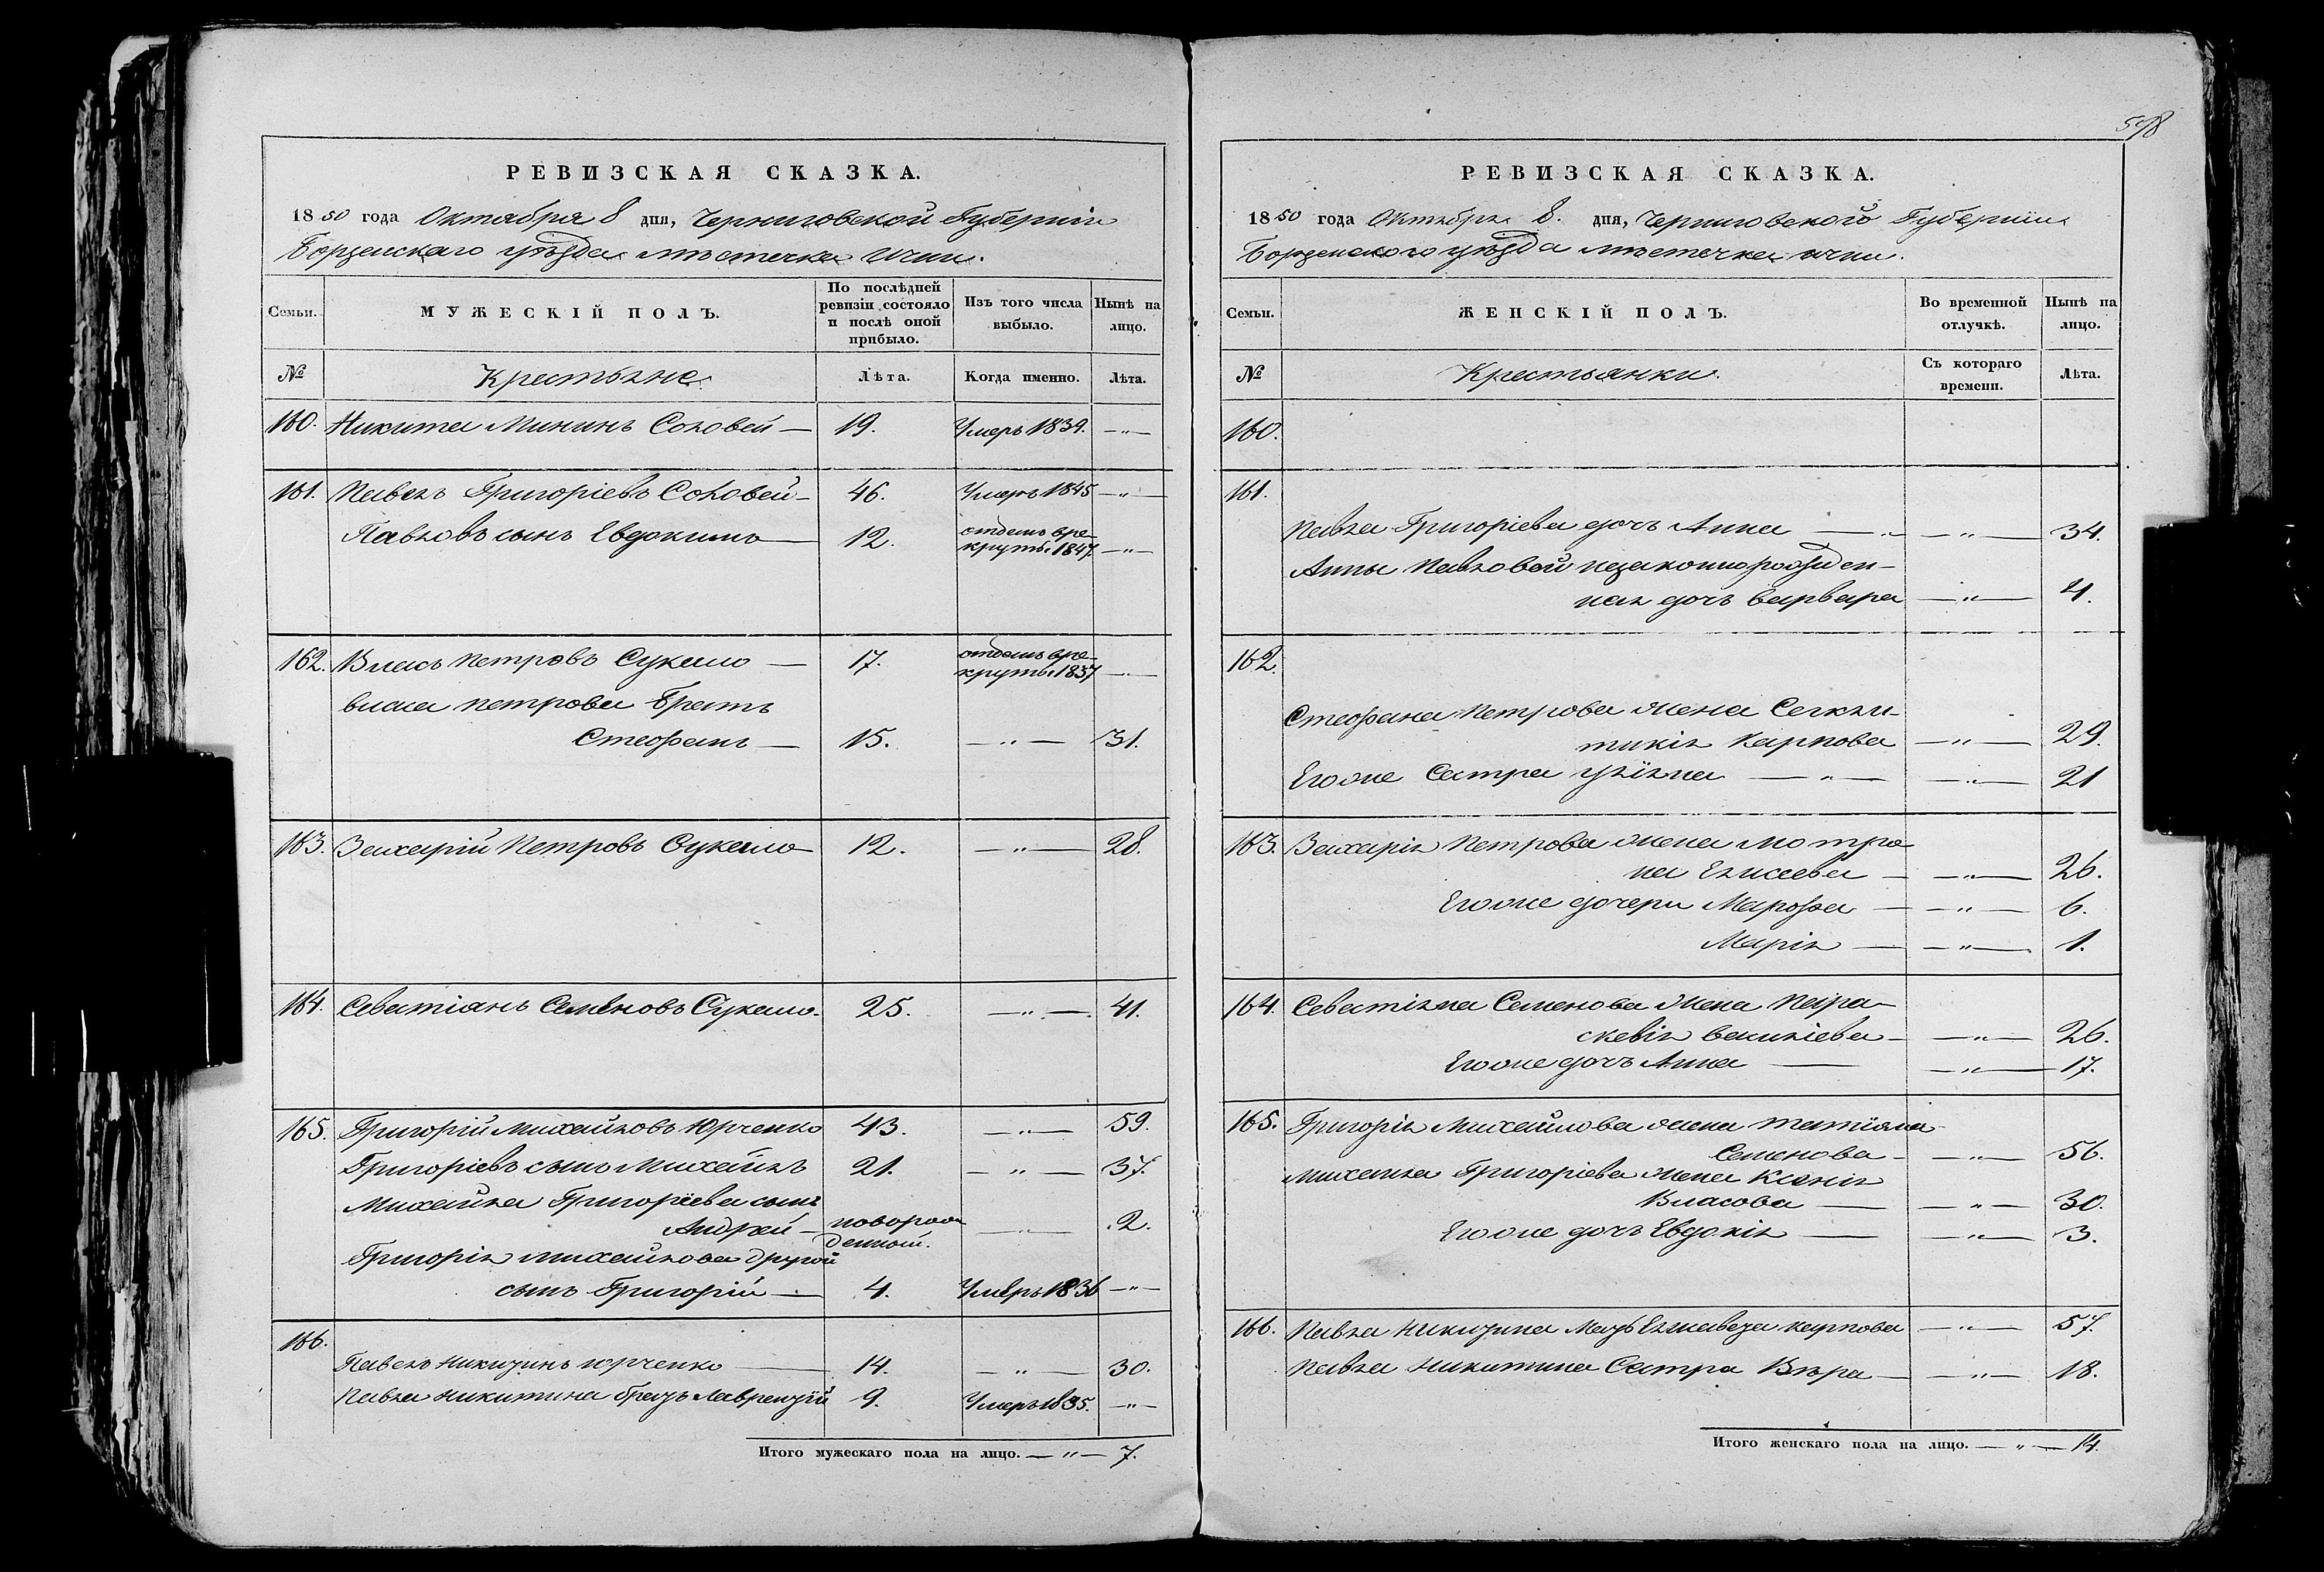 РЕВИЗСКАЯ СКАЗКА.
1850 года Октября 8 дня, Черниговской Губерніи
Борзенскаго уѣзда мѣстечка Ични.
Семьи.
МУЖЕСКІЙ ПОЛЪ.
По послѣдней ревизіи состояло и послѣ оной прибыло.
Изъ того числа выбыло.
Нынѣ на лицо.
№
Крестьяне
Лѣта.
Когда именно.
Лѣта.
160. Никита Мининъ Соловей — 19. Умеръ 1839. — „ —
161. Павелъ Григоріевъ Соловей — 46. Умеръ 1845 — „ —
Павловъ сынъ Евдокимъ — 12. отданъ в ре-
круты 1847. — „ —
162. Власъ Петровъ Сукало — 17. отданъ в ре-
круты 1837 — „ —
Власа Петрова Братъ
Стефанъ — 15. — „ — 31.
163. Захарій Петровъ Сукало 12. — „ — 28.
164. Севатіянъ Семеновъ Сукало. 25. — „ — 41.
165. Григорій Михайловъ Юрченко 43. — „ — 59.
Григоріевъ сынъ Михайлъ 21. — „ — 37.
Михайла Григоріева сынъ
Андрей — новорож
денный. — „ — 2.
Григорія Михайлова другой
сынъ Григорій — 4. Умеръ 1836 — „ —
166.
Павелъ Никитинъ Юрченко — 14. — „ — 30.
Павла Никитина братъ Лаврентій 9. Умеръ 1835. — „ —
Итого мужескаго пола на лицо. — „ — 7.
РЕВИЗСКАЯ СКАЗКА.
1850 года Октября 8. дня, Черниговской Губерніи
Борзенскаго уѣзда мѣстечка Ични.
Семьи.
ЖЕНСКІЙ ПОЛЪ.
Во временной отлучкѣ.
Нынѣ на лицо.
№
Крестьянки.
Съ котораго времени.
Лѣта.
160.
161.
Павла Григоріева дочь Анна — „ — „ — 34.
Анны Павловой незаконнорожден-
ная дочь Варвара — „ — 4.
162.
Стефана Петрова жена Секли-
тикія Карпова — „ — 29.
Егоже Сестра Уліяна — „ — „ — 21
163. Захарія Петрова жена Мотро
на Елисеева — „ — 26.
Егоже дочери Марфа — „ — 6.
Марія — „ — 1.
164. Севатіяна Семенова Жена Пара-
скевія Василіева — „ — 26.
Егоже дочь Анна — „ — 17.
165. Григорія Михайлова жена Татіяна
Семенова — „ — 56.
Михайла Григоріева жена Ксенія
Власова — „ — 30.
Егоже дочь Евдокія — „ — 3.
166. Павла Никитина Мать Елисавета Карпова — „ — 57.
Павла Никитина Сестра Вѣра — „ — 18.
Итого женскаго пола на лицо. — „ — 14.